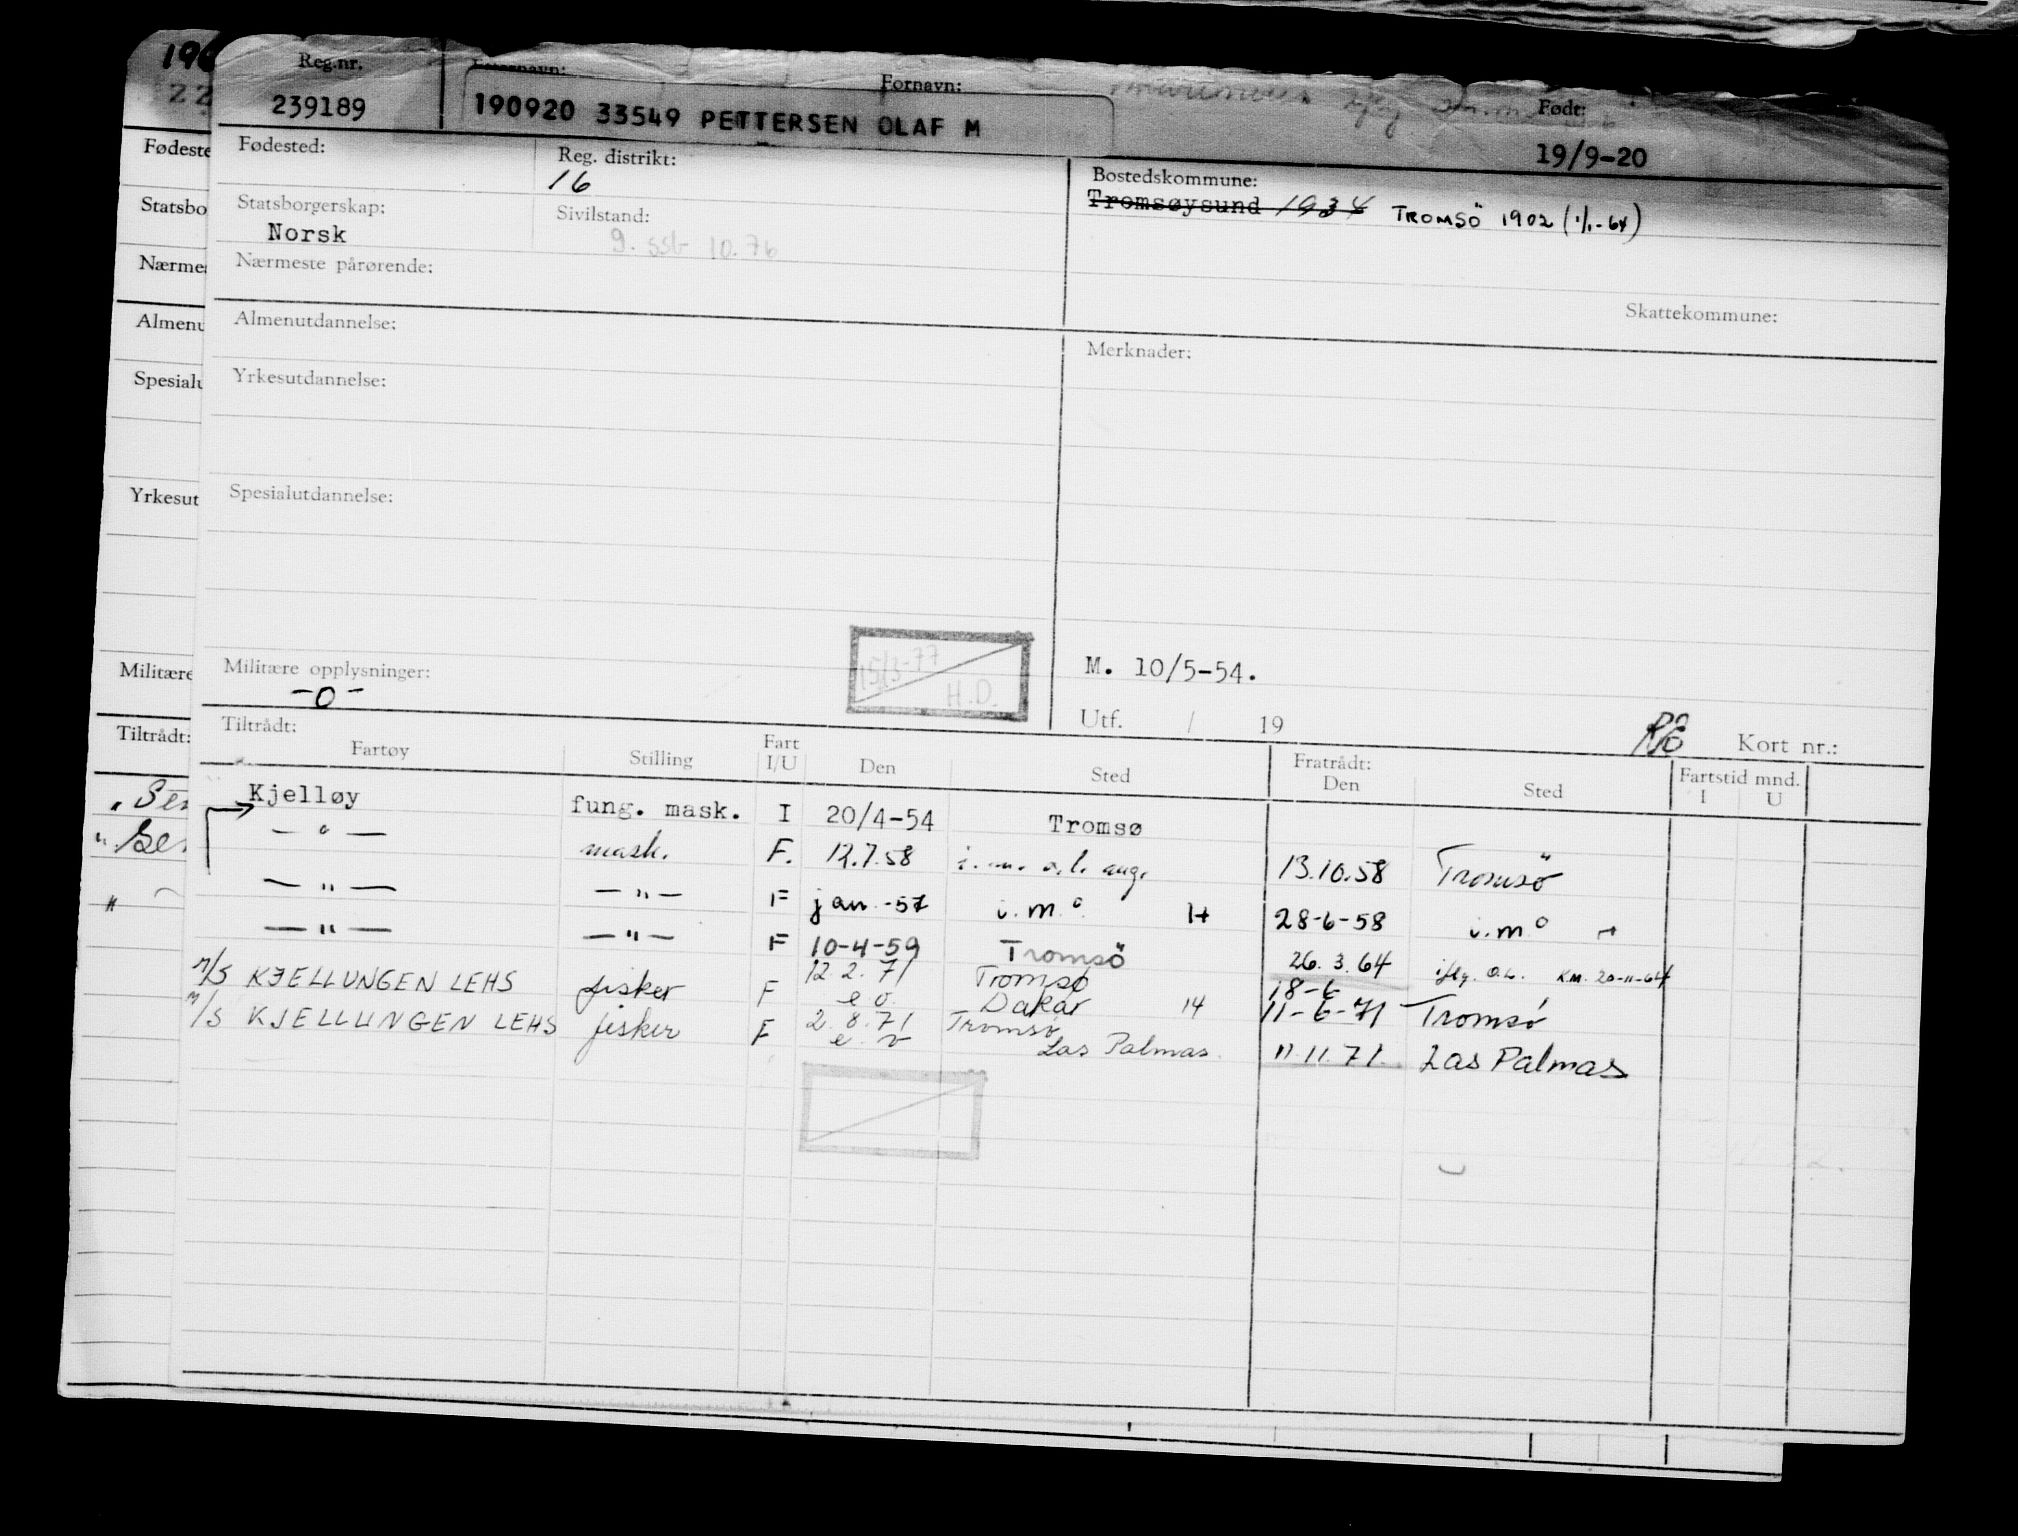 196 Reg.nr. Etternavn: Fornavn: Født:
22 239189 190920 33549 PETTERSEN OLAF M 19/9-20
Fødeste Fødested: Reg. distrikt: Bostedskommune:
16 Tromsøysund 1934 TROMSÖ 1902 (1/1-64)
Statsbo Statsborgerskap: Sivilstand:
Norsk 9. ssb 10.76
Nærmes Nærmeste pårørende:
Skattekommune:
Almenu Almenutdannelse:
Merknader:
Spesialu Yrkesutdannelse:
Yrkesut Spesialutdannelse:
Militære Militære opplysninger: 15/3-77 M. 10/5-54.
-0- H.D.
Utf. / 19 Kort nr.:
Tiltrådt: Tiltrådt:
Fartøy Stilling Fart I/U Den Sted Fratrådt: Den Sted Fartstid mnd. I U
Kjelløy fung. mask. I 20/4-54 Tromsø
— " — mask. F. 12.7.58 i.m. o.l. aug. 13.10.58 Tromsö
— " — — " — F jan -57 i.m.o. H 28-6-58 i.m.o
— " — — " — F 10-4-59 Tromsö 26.3.64 iflg. O.L. KM. 20-11-64
M/S KJELLUNGEN LEHS fisker F 12.2.71 Tromsø 18-6
e o. Dakar 14 11-6-71 Tromsø
M/S KJELLUNGEN LEHS fisker F 2.8.71 Tromsø
e. o Las Palmas. 11.11.71. Las Palmas